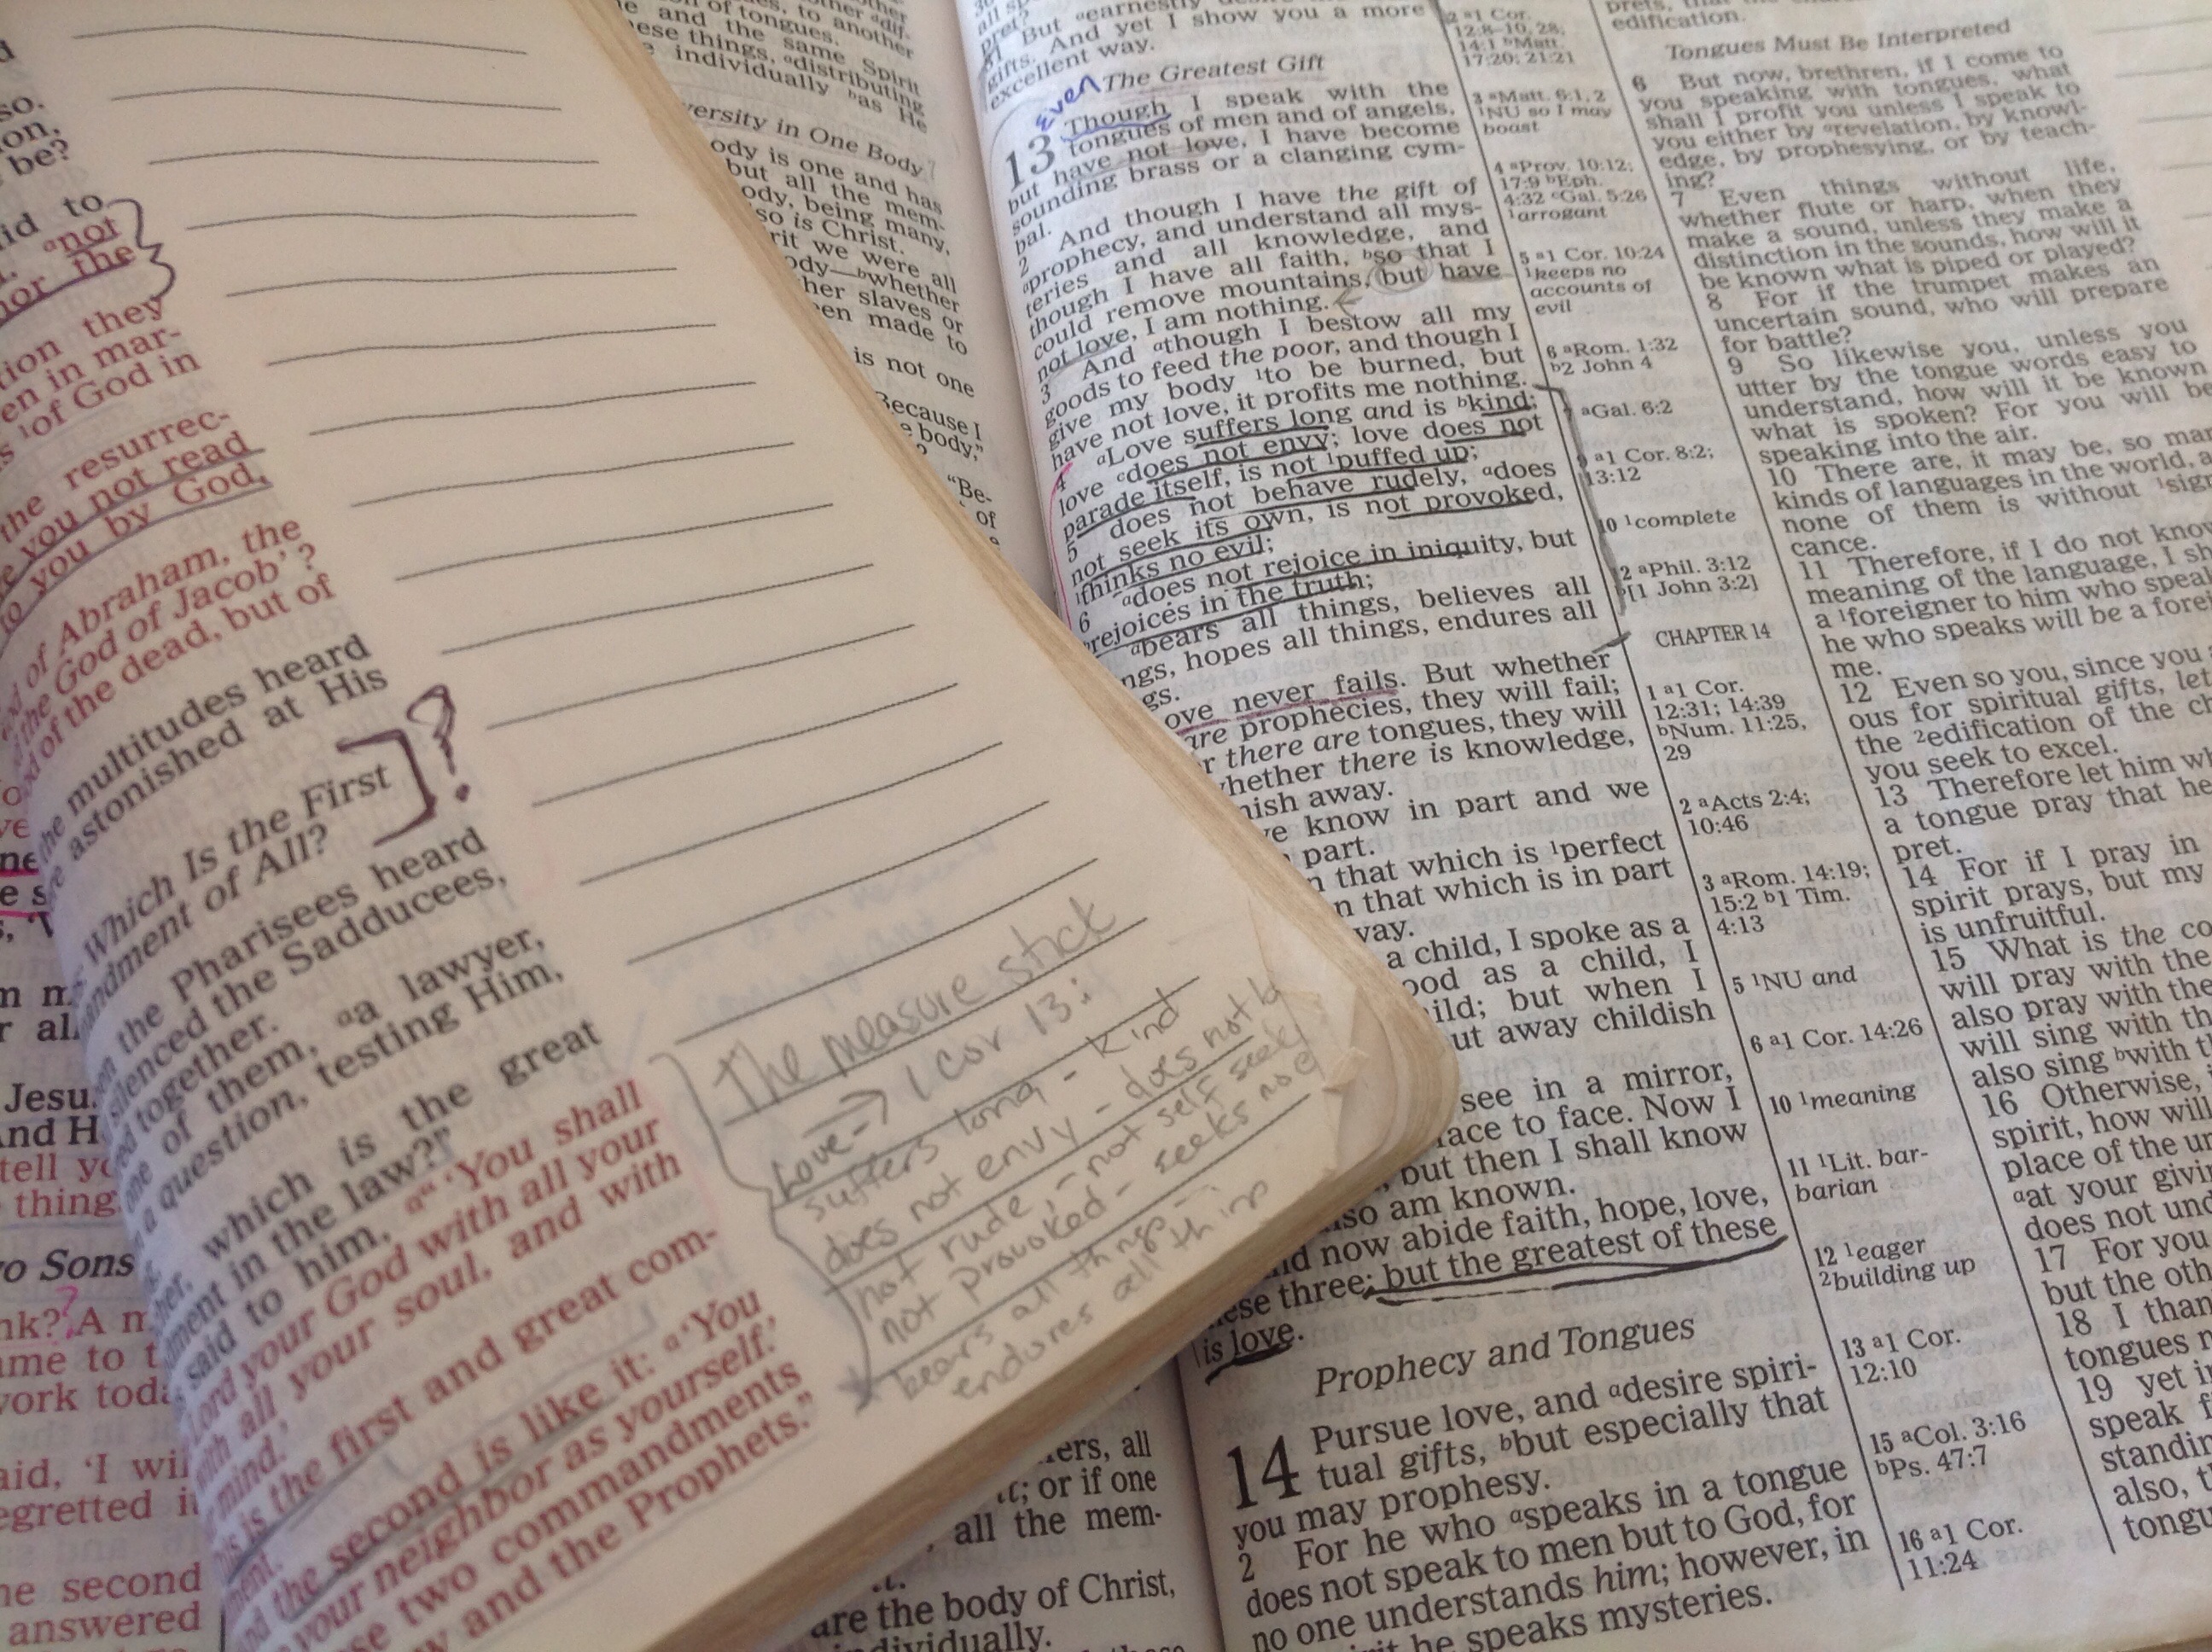 so.
be?
id to
not
nor the
tion they
en in mar-
of God in
the resurrec-
you not read
to you by God,
of Abraham, the
the God of Jacob'?
of the dead, but of
the multitudes heard
astonished at His
Which Is the First
andment of All?
the Pharisees heard
silenced the Sadducees,
together.
one of them, aa lawyer,
a question, testing Him,
which is the great
dment in the law?"
said to him, a"'You shall
Lord your God with all your
with all your soul, and with
mind.'
is is the first and great com-
ment.
and the second is like it: a'You
your neighbor as yourself.'
se two commandments
w and the Prophets."
Jesu
And H
tell yo
thing
o Sons
nk? A m
ame to t
work toda
aid, 'I wil
egretted it
he second
answered
The measure stick
Love -> 1 Cor 13:
suffers long - kind
does not envy - does not b
not rude, - not self seek
not provoked - seeks no e
bears all things -
endures all things
of tongues.
and the same Spirit
ese things, adistributing
individually bas He
versity in One Body
ody is one and has
but all the mem-
ody, being many,
so is Christ.
rit we were all
ody—bwhether
her slaves or
en made to
is not one
Because I
e body,"
"Be-
of
ers, all
it; or if one
all the mem-
are the body of Christ,
individually.
But aearnestly
gifts. And yet I show you a more
excellent way.
Even
The Greatest Gift
13 Though I speak with the
tongues of men and of angels,
but have not love, I have become
sounding brass or a clanging cym-
bal.
2 And though I have the gift of
aprophecy, and understand all mys-
teries and all knowledge, and
though I have all faith, bso that I
could remove mountains, but have
not love, I am nothing.
3 And athough I bestow all my
goods to feed the poor, and though I
give my body 1to be burned, but
have not love, it profits me nothing.
4 aLove suffers long and is bkind;
love cdoes not envy; love does not
parade itself, is not 1puffed up;
5 does not behave rudely, adoes
not seek its own, is not provoked,
1thinks no evil;
6 adoes not rejoice in iniquity, but
brejoices in the truth;
abears all things, believes all
ngs, hopes all things, endures all
gs.
ove never fails. But whether
are prophecies, they will fail;
r there are tongues, they will
whether there is knowledge,
nish away.
ve know in part and we
part.
n that which is 1perfect
n that which is in part
way.
a child, I spoke as a
ood as a child, I
ild; but when I
ut away childish
see in a mirror,
face to face. Now I
but then I shall know
also am known.
nd now abide faith, hope, love,
ese three; but the greatest of these
is love.
Prophecy and Tongues
14 Pursue love, and adesire spiri-
tual gifts, bbut especially that
you may prophesy.
2 For he who aspeaks in a tongue
does not speak to men but to God, for
no one understands him; however, in
he speaks mysteries.
2 a1 Cor.
12:8-10, 28;
14:1 bMatt.
17:20; 21:21
3 aMatt. 6:1, 2
1NU so I may
boast
4 aProv. 10:12;
17:9 bEph.
4:32 cGal. 5:26
1arrogant
5 a1 Cor. 10:24
1keeps no
accounts of
evil
6 aRom. 1:32
b2 John 4
7 aGal. 6:2
9 a1 Cor. 8:2;
13:12
10 1complete
12 aPhil. 3:12
b[1 John 3:2]
CHAPTER 14
1 a1 Cor.
12:31; 14:39
bNum. 11:25,
29
2 aActs 2:4;
10:46
3 aRom. 14:19;
15:2 b1 Tim.
4:13
5 1NU and
6 a1 Cor. 14:26
10 1meaning
11 1Lit. bar-
barian
12 1eager
2building up
13 a1 Cor.
12:10
15 aCol. 3:16
bPs. 47:7
16 a1 Cor.
11:24
edification.
Tongues Must Be Interpreted
6 But now, brethren, if I come to
you speaking with tongues, what
shall I profit you unless I speak to
you either by arevelation, by knowl-
edge, by prophesying, or by teach-
ing?
7 Even things without life,
whether flute or harp, when they
make a sound, unless they make a
distinction in the sounds, how will it
be known what is piped or played?
8 For if the trumpet makes an
uncertain sound, who will prepare
for battle?
9 So likewise you, unless you
utter by the tongue words easy to
understand, how will it be known
what is spoken? For you will be
speaking into the air.
10 There are, it may be, so man
kinds of languages in the world, a
none of them is without 1sign
cance.
11 Therefore, if I do not know
meaning of the language, I sh
a 1foreigner to him who speak
he who speaks will be a forei
me.
12 Even so you, since you
ous for spiritual gifts, let
the 2edification of the ch
you seek to excel.
13 Therefore let him wh
a tongue pray that he
pret.
14 For if I pray in
spirit prays, but my
is unfruitful.
15 What is the co
will pray with the
also pray with the
will sing with th
also sing bwith t
16 Otherwise, i
spirit, how will
place of the un
aat your givin
does not und
17 For you
but the oth
18 I than
tongues
19 yet i
speak
standin
also, t
tongu